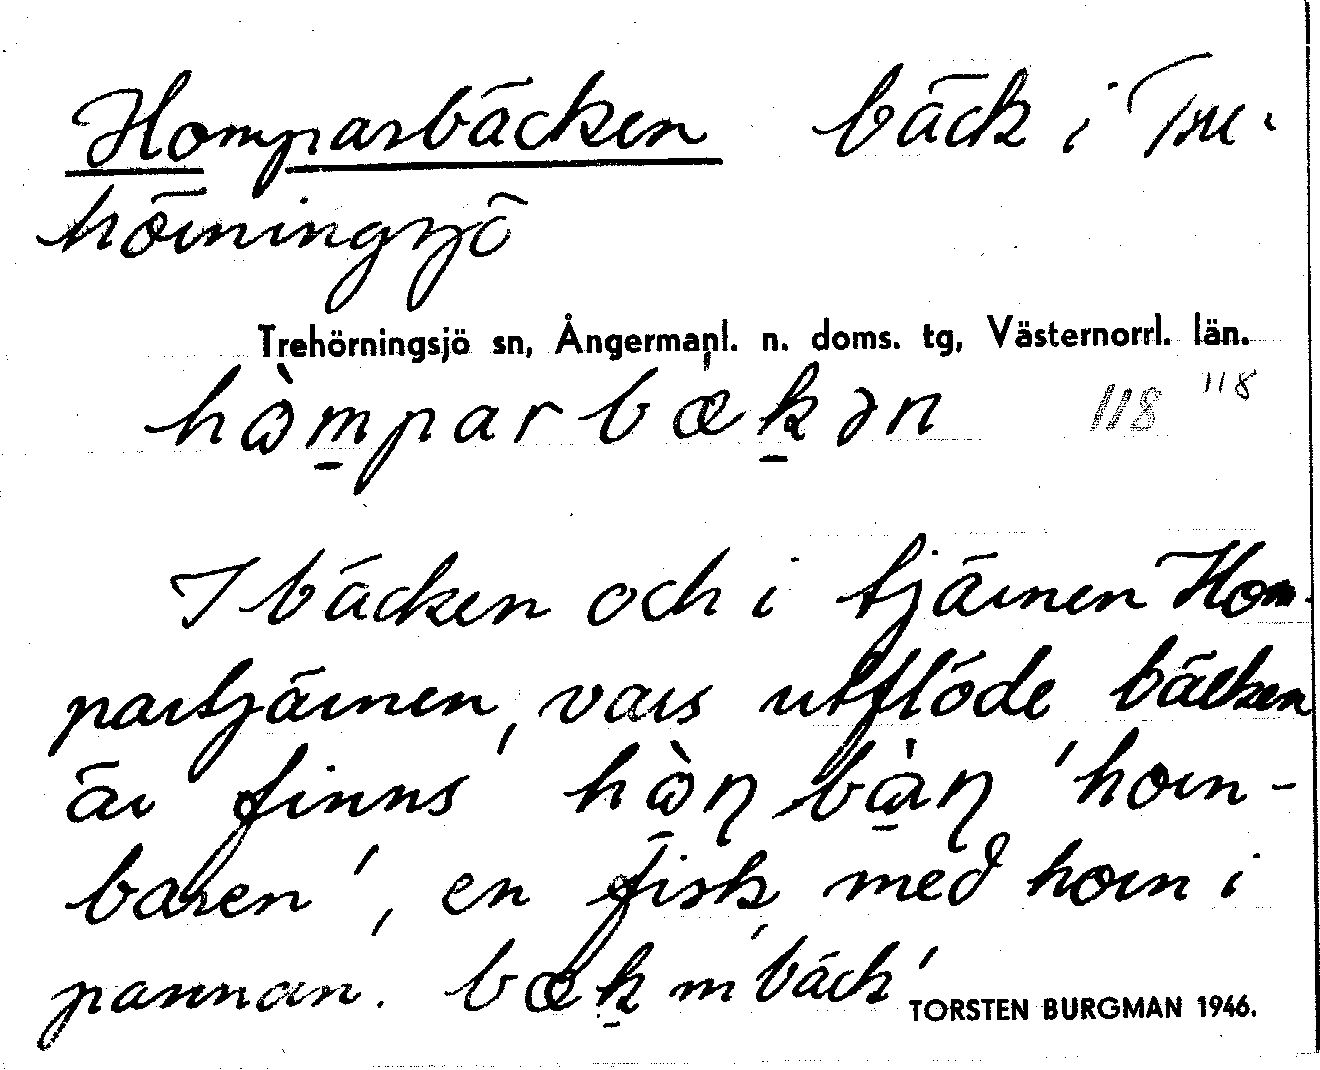 Homparbäcken bäck i Tre-
hörningsjö
Trehörningsjö sn, Ångermanl. n. doms. tg, Västernorrl. län.
hòmparbækən 118 118
I bäcken och i tjärnen Hom-
partjärnen, vars utflöde bäcken
är finns hòɳbàɳ 'horn-
baren', en fisk med horn i
pannan. bæk m 'bäck'
TORSTEN BURGMAN 1946.